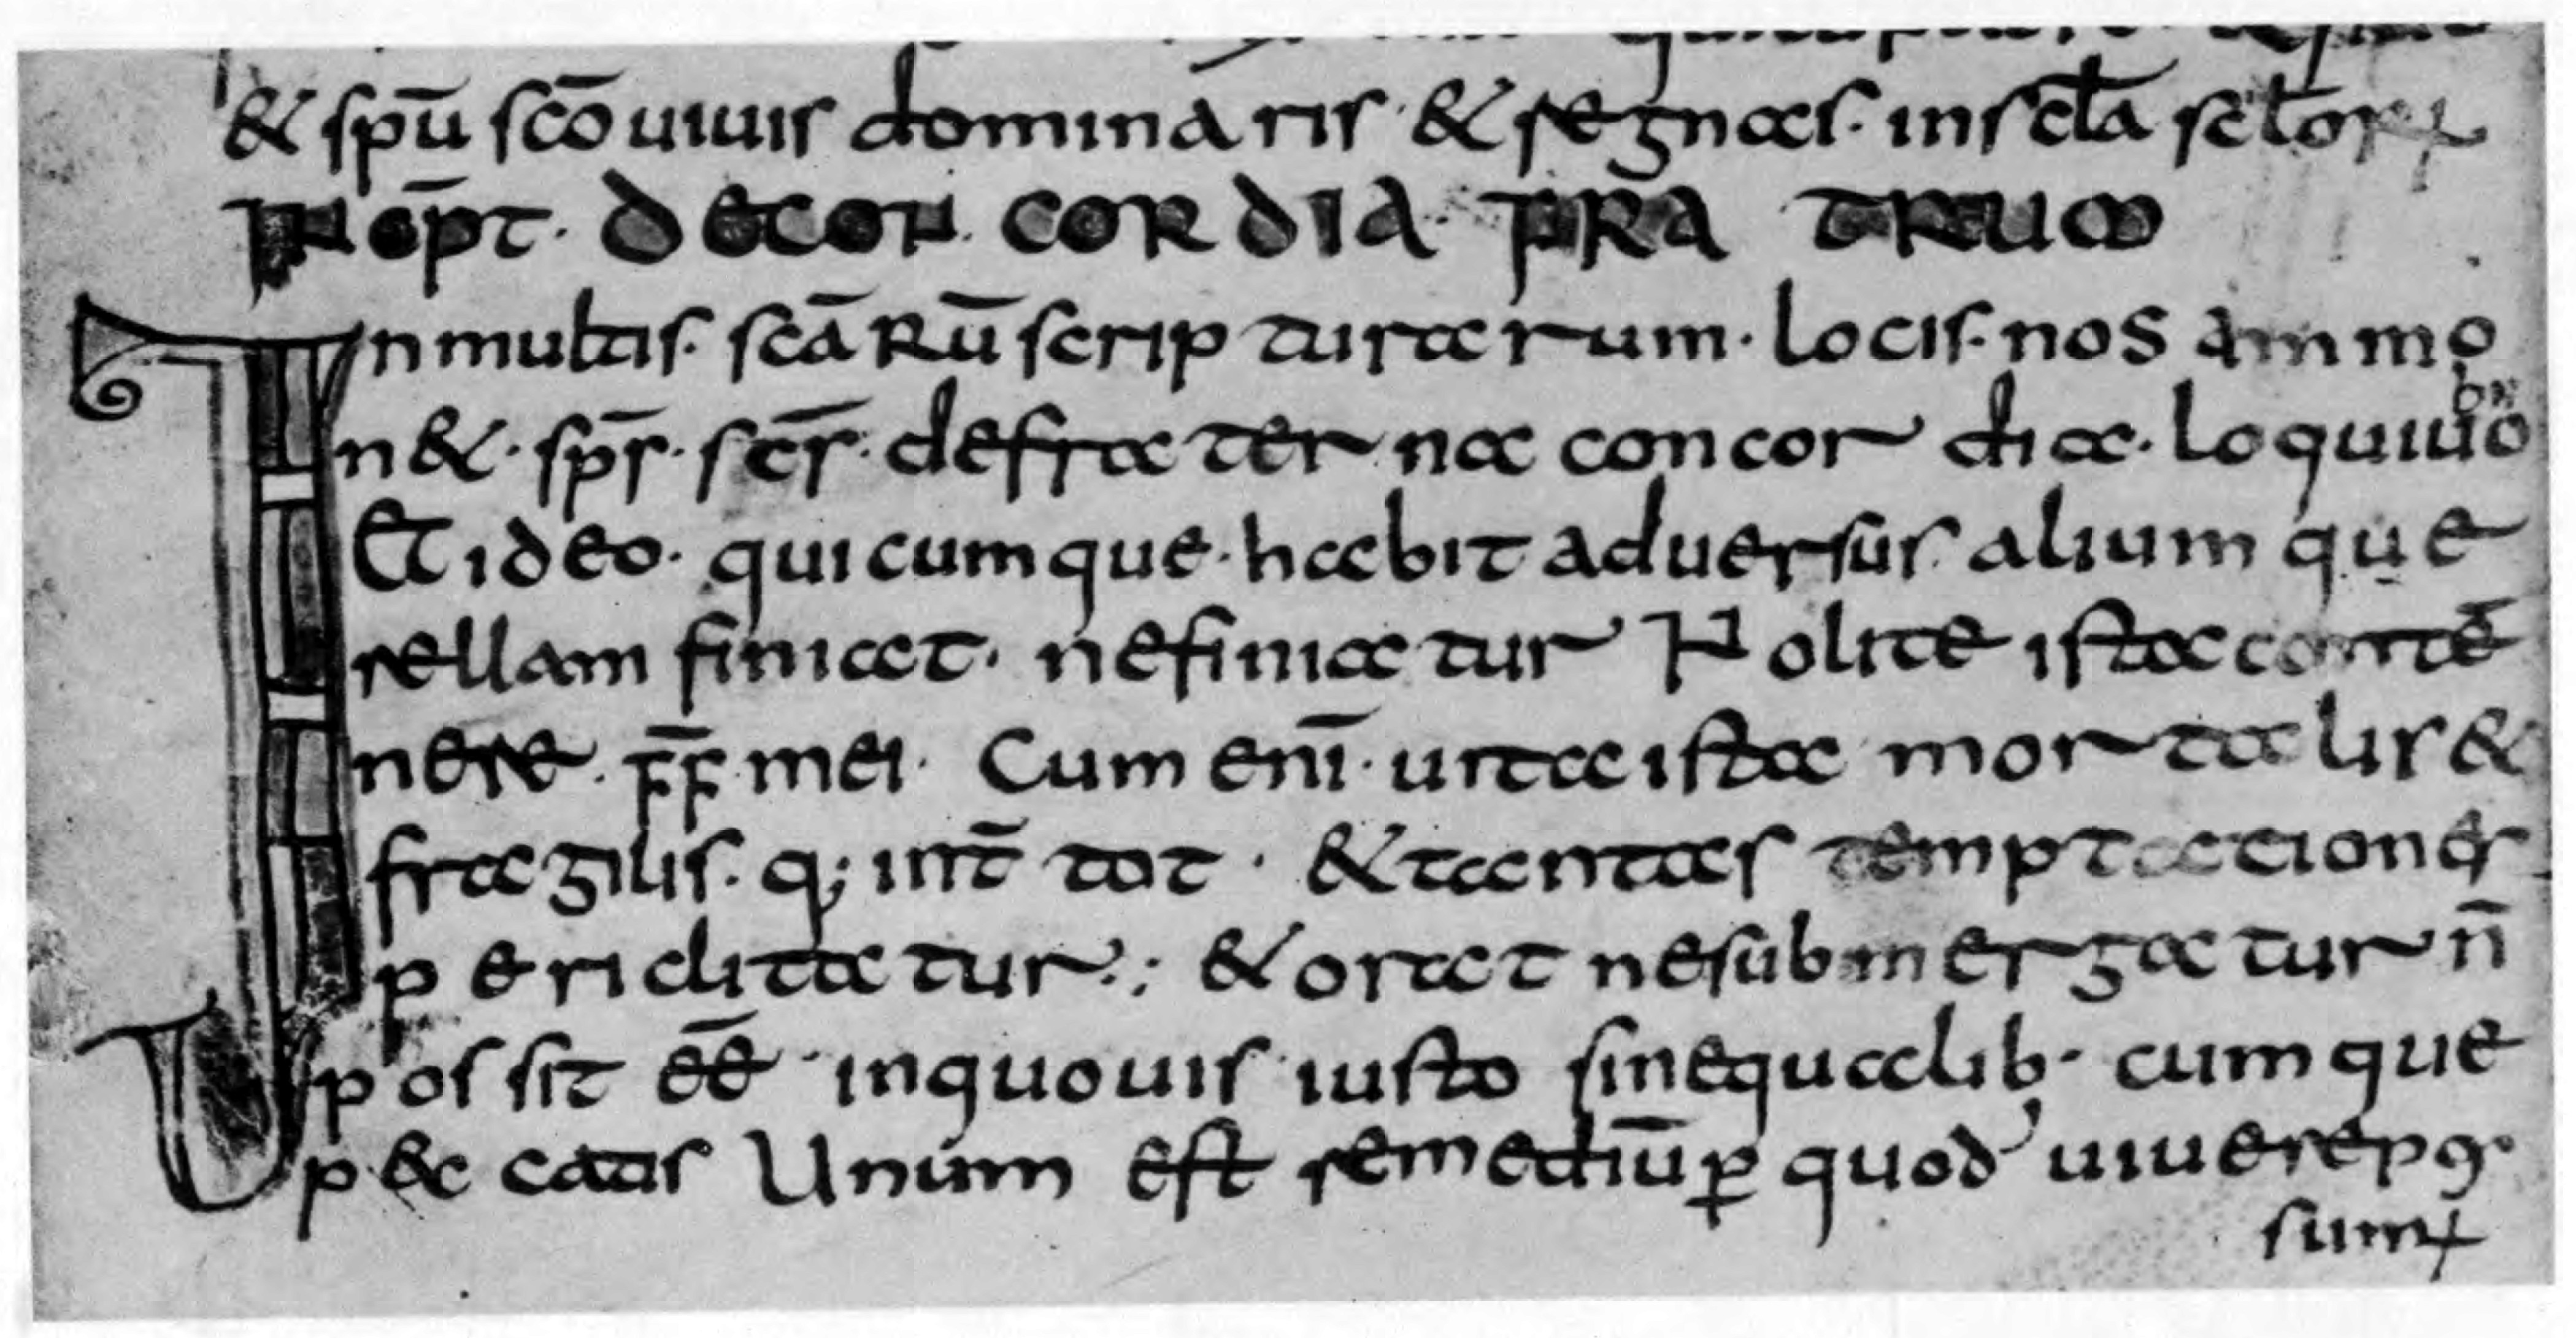 & spū scō uiuis dominaris · & regnas · in scła scłorꝝ
INCP̄T · DE CON CORDIA · FRA TRUM
In multis · scārū scripturarum · locis · nos ammo
n& · sp̄s · sc̄s · de fraterna concordia · loquiuo
bꝫ
Et ideo · quicumque · habit aduersus alium que
rellam finiat · ne finiatur Nolite ista contē
nere · f̄f̄ · mei · Cum enī · uita ista mortalis &
fragilis · q; int̄ tot · & tantas temptationes
periclitatur ·; & orat ne submergatur n̄
possit ēē · in quouis iusto sine qualib · cumque
peccatis Unum est remediū ꝑ quod uiuere pos
sumꝰ